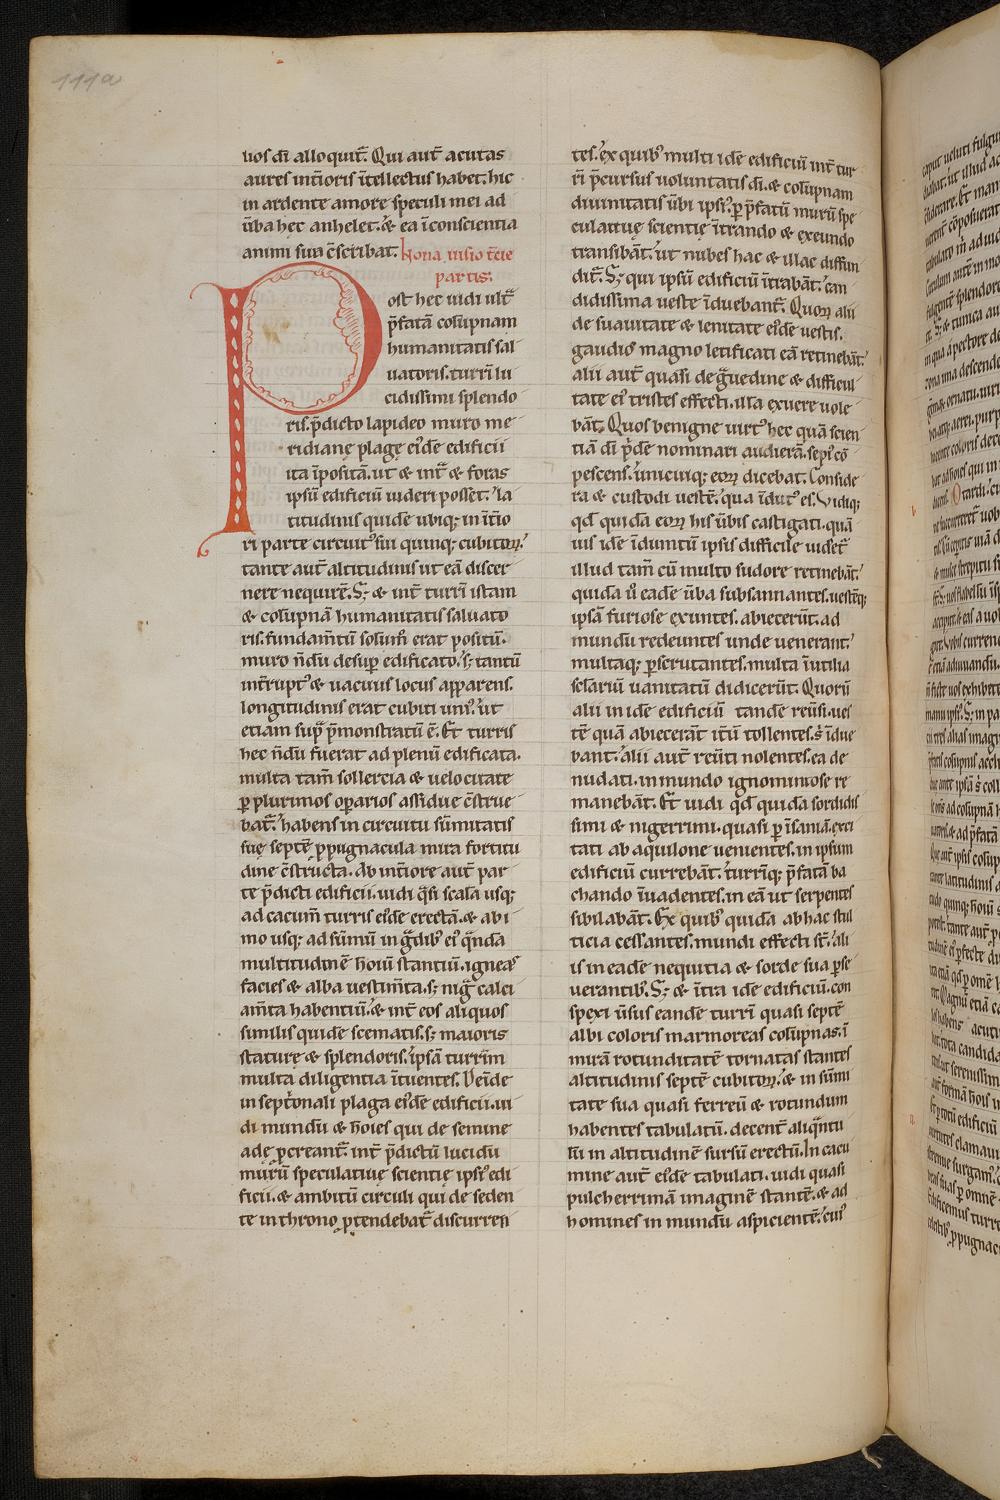 111a
uos dī alloquit᷑. Qui aut᷑ acutas
aures int̄ioris ītellectus habet: hic
in ardente amore speculi mei ad
ūba hec anhelet: & ea ī conscientia
animi sua c̄scribat. Nona uisio t̄cie
partis:
Post hec uidi ult᷑
p̄fatā colūpnam
humanitatis sal
uatoris. turrī lu
cidissimi splendo
ris. p̄dicto lapideo muro me
ridianę plagę eiꝰdē edificii
ita īpositā. ut & int᷑ & foras
ipsū edificiū uideri posset: la
titudinis quidē ubiq; in īt̄io
ri parte circuitꝰ sui quinq; cubitoꝝ:
tante aut᷑ altitudinis ut eā discer
nere nequirē. S; & int᷑ turrī istam
& colūpnā humanitatis saluato
ris. fundam̄tū solum̄ erat positū.
muro n̄dū desuꝑ edificato: s; tantū
int᷑ruptꝰ & uacuus locus apparens.
longitudinis erat cubiti uniꝰ: ut
etiam sup᷑ p̄monstratū ē. Et turris
hec n̄dū fuerat ad plenū edificata.
multa tam̄ sollercia & uelocitate
ꝑ plurimos oꝑarios assidue c̄strue
bat᷑: habens in circuitu sūmitatis
suę septē ꝓpugnacula mira fortitu
dine c̄structa. Ab int̄iore aut᷑ par
te p̄dicti edificii. uidi q̄si scalā usq;
ad cacum̄ turris eiꝰdē erectā. & ab i
mo usq; ad sūmū in g̃dibꝰ eiꝰ q̄ndā
multitudinē hoīum stantiū. igneas
facies & alba uestim̄ta. s; nig̃ calci
am̄ta habentiū: & int᷑ eos aliquos
similis quidē scematis. s; maioris
staturę & splendoris. ipsā turrim
multa diligentia ītuentes. Deīde
in septōnali plaga eiꝰdē edificii. ui
di mundū & hoīes qui de semine
adę ꝓcreant᷑. int᷑ p̄dictū lucidū
murū speculatiuę scientię ipsiꝰ edi
ficii. & ambitū circuli qui de seden
te in throno ꝓtendebat᷑ discurren
tes. ex quibꝰ multi idē edificiū int᷑ tur
rī p̄cursus uoluntatis dī. & colūpnam
diuinitatis ūbi ipsiꝰ. ꝑ p̄fatū murū spe
culatiuę scientię ītrando & exeundo
transibāt: ut nubes hac & illac diffun
dit᷑. S; qui ipsū edificiū ītrabāt: can
didissima ueste īduebant᷑. Quoꝝ alii
de suauitate & lenitate eiꝰdē uestis.
gaudio magno letificati eā retinebāt:
alii aut᷑ quasi de g̃uedine & difficul
tate eiꝰ tristes effecti. illā exuere uole
bāt. Quos benigne uirtꝰ hec quā scien
tiā dī p̄dē nominari audierā. sepiꝰ cō
pescens. unicuiq; eoꝝ dicebat. Conside
ra & custodi uestē: qua īdutꝰ es. Vidiq;
qd̄ quidā eoꝝ his ūbis castigati. quā
uis idē īdumtū ipsis difficile uidet᷑
illud tam̄ cū multo sudore retinebāt:
quidā u̓ eadē ūba subsannantes. uestēq;
ipsā furiose exuntes. abiecerūt. ad
mundū redeuntes unde uenerant:
multaq; ꝑscrutantes. multa īutilia
sclariū uanitatū didicerūt. Quorū
alii in idē edificiū tandē reūsi. ues
tē quā abiecerāt itū tollentes. s̄ īdue
bant: alii aut᷑ reūti nolentes. ea de
nudati. in mundo ignominiose re
manebāt. Et uidi qd̄ quidā sordidis
simi & nigerrimi. quasi ꝑ īsaniā. exci
tati ab aquilone uenientes. in ipsum
edificiū currebāt: turrīq; p̄fatā ba
chando īuadentes. in eā ut serpentes
sibilabāt. Ex quibꝰ quidā ab hac stul
ticia cessantes. mundi effecti st̄: ali
is in eadē nequitia & sorde sua ꝑse
uerantibꝰ. S; & īt̄a idē edificiū. con
spexi ūsus eandē turrī quasi septē
albi coloris marmoreas colūpnas. ī
mirā rotunditatē tornatas stantes
altitudinis septē cubitoꝝ: & in sūmi
tate sua quasi ferreū & rotundum
habentes tabulatū. decent᷑ aliq̄ntu
lū in altitudinē sursū erectū. In cacu
mine aut᷑ eiꝰdē tabulati. uidi quasi
pulcherrimā imaginē stantē. & ad
homines in mundū aspicientē: cuiꝰ